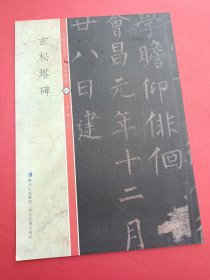 學瞻仰徘徊
會昌元年十二月
廿八日建
玄秘塔碑